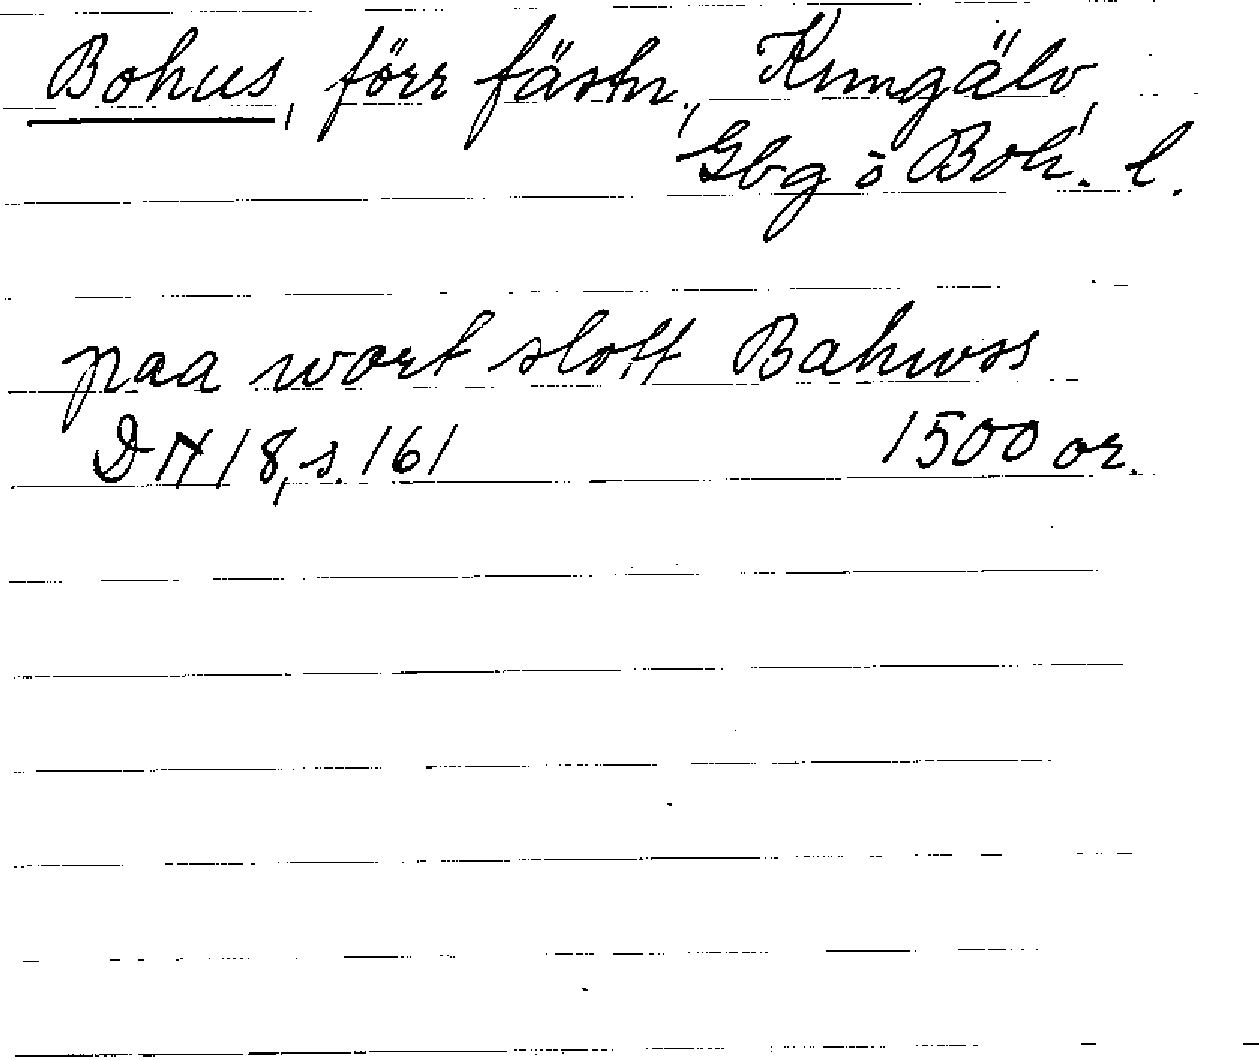 Bohus, förr fästn., Kungälv,
Gbg o Boh. l.
paa wort slott Bahwss
DN 18, s. 161 1500 or.